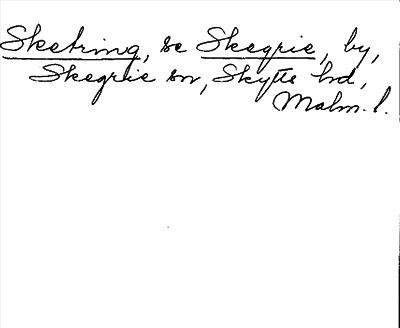 Skebring, se Skegrie, by,
Skegrie sn, Skytts hd,
Malm. l.